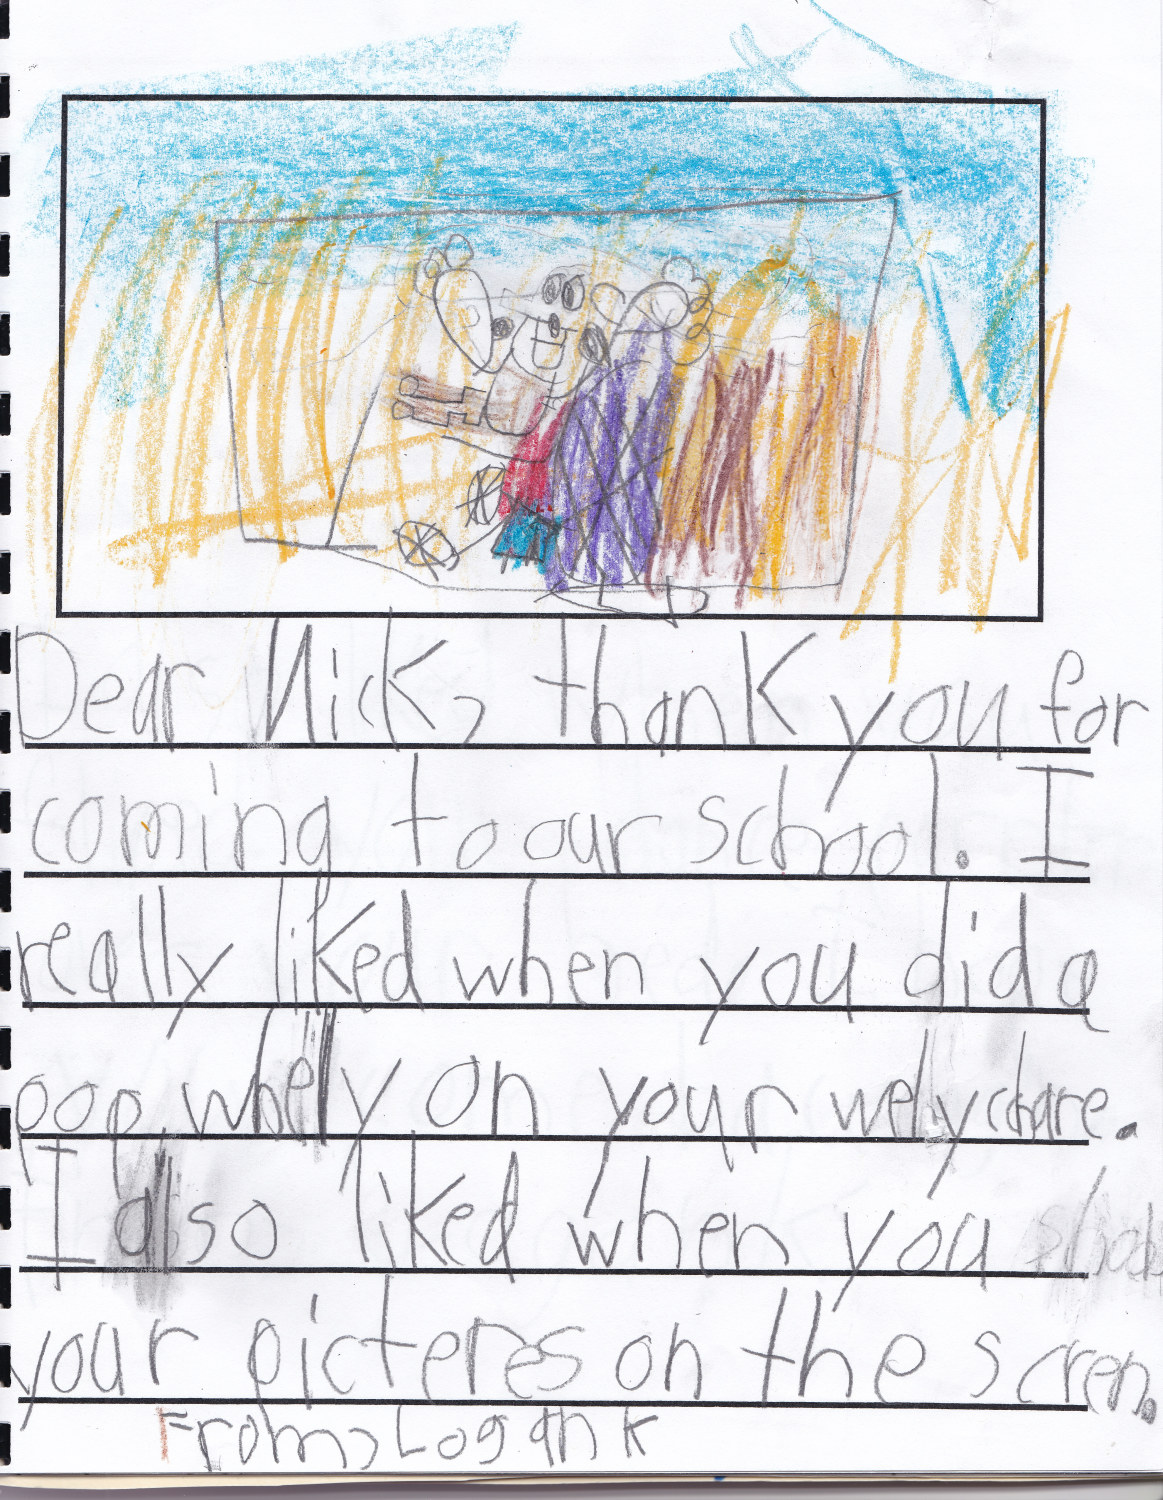 Dear Nick, thank you for
coming to our school. I
really liked when you did a
pop whelly on your welychare.
I also liked when you
your picteres on the scren.
From, Logan K